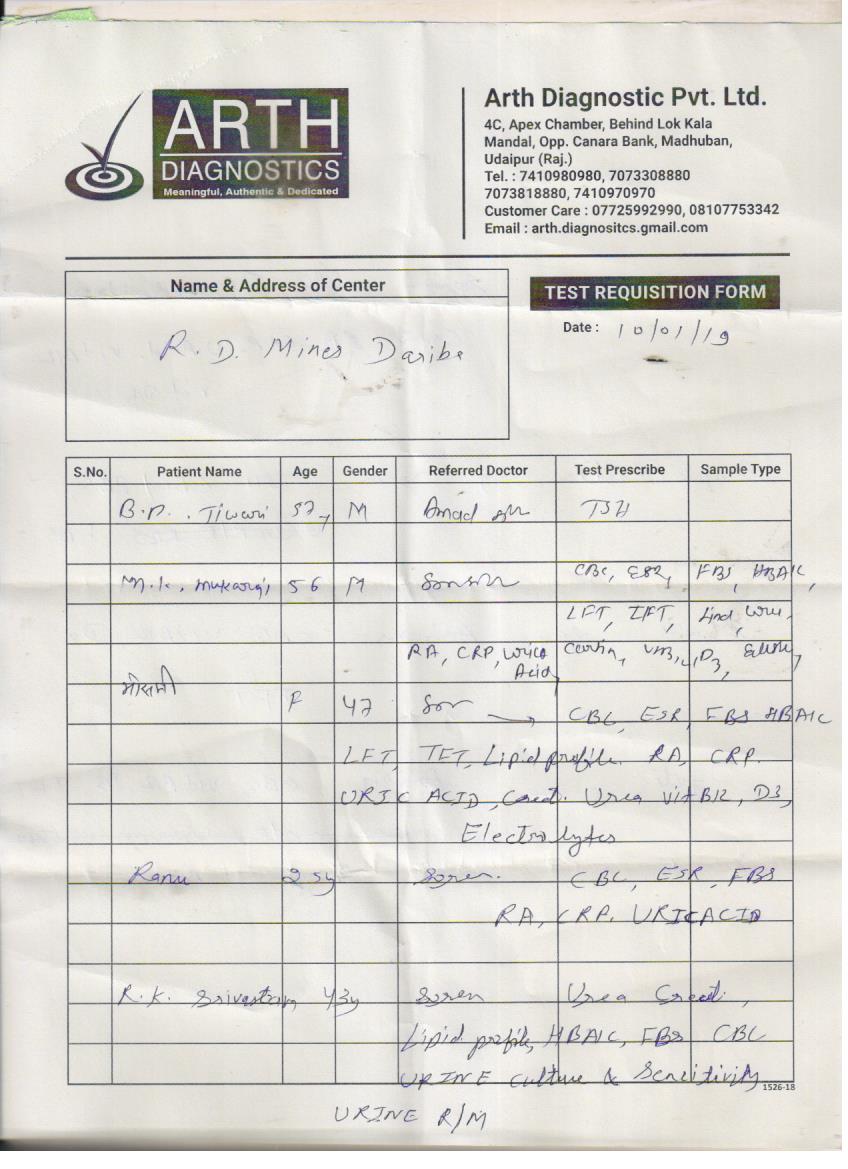 ARTH
DIAGNOSTICS
Meaningful, Authentic & Dedicated
Arth Diagnostic Pvt. Ltd.
4C, Apex Chamber, Behind Lok Kala
Mandal, Opp. Canara Bank, Madhuban,
Udaipur (Raj.)
Tel. : 7410980980, 7073308880
7073818880, 7410970970
Customer Care : 07725992990, 08107753342
Email : arth.diagnositcs.gmail.com
Name & Address of Center
R. D. Mines Dariba
TEST REQUISITION FORM
Date : 10/01/19
S.No. Patient Name Age Gender Referred Doctor Test Prescribe Sample Type
Tiwari 57 M TSH
M.K. 56 M CBC, ESR, FBS, HBA1C,
LFT, TFT,
RA, CRP, Uric D3,
Acid
मौसमी F 47 CBC, ESR, FBS HBA1C
LFT, TFT, Lipid profile. RA, CRP.
URIC ACID, Creat. Urea vit B12, D3,
Electrolytes
Ranu 25y Soren. CBC, ESR, FBS
RA, CRP, URIC ACID
R.K. 43y Soren Urea Creat.,
Lipid profile, HBA1C, FBS CBC
URINE culture & Sensitivity
1526-18
URINE R/M